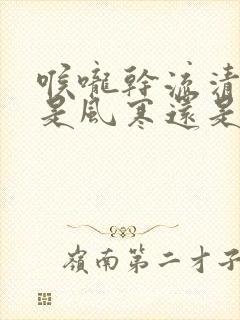 喉嚨幹流清
是風寒還是
嶺南第二才子